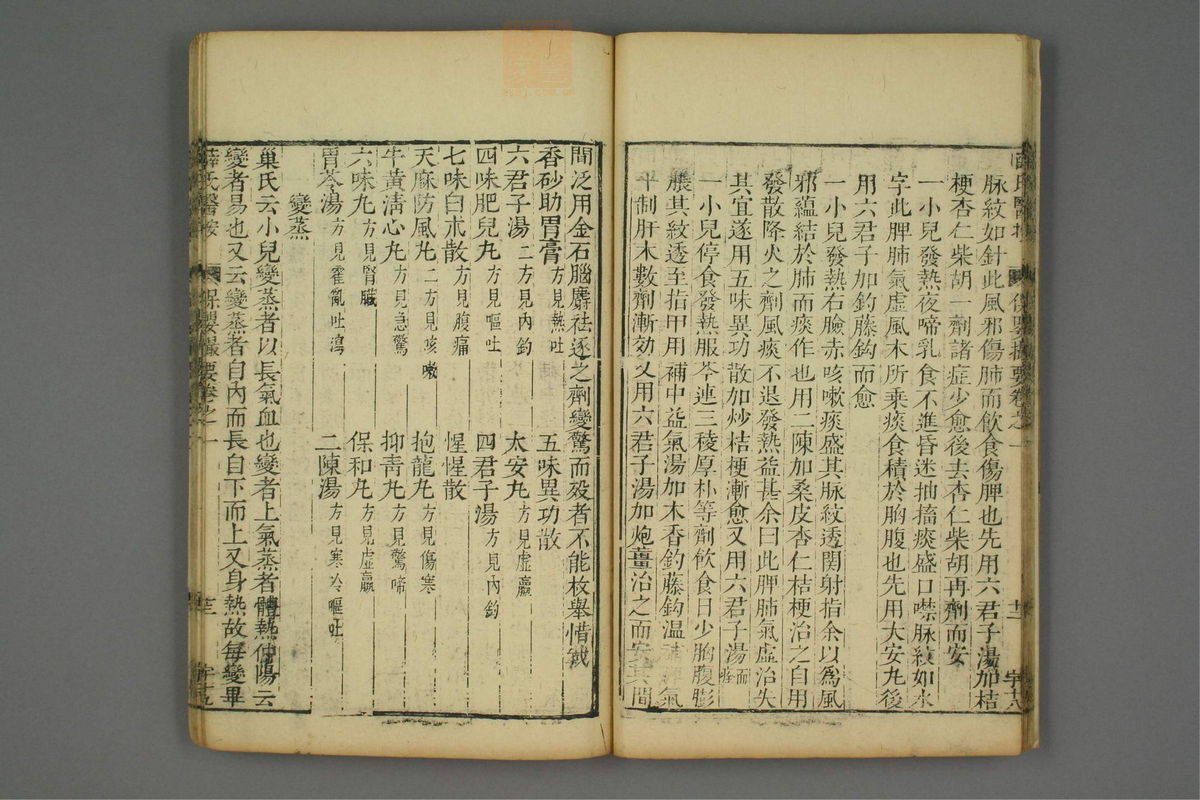 薛氏醫按 保嬰撮要卷之一 十二 字十八
脉紋如針此風邪傷肺而飲食傷脾也先用六君子湯加桔
梗杏仁柴胡一劑諸症少愈後去杏仁柴胡再劑而安
一小兒發熱夜啼乳食不進昏迷抽搐痰盛口噤脉紋如水
字此脾肺氣虛風木所乗痰食積於胸腹也先用大安丸後
用六君子加釣藤鈎而愈
一小兒發熱右臉赤咳嗽痰盛其脉紋透関射指余以爲風
邪蘊結於肺而痰作也用二陳加桑皮杏仁桔梗治之自用
發散降火之劑風痰不退發熱益甚余曰此脾肺氣虛治失
其宜遂用五味異功散加炒桔梗漸愈又用六君子湯而痊
一小兒停食發熱服芩連三稜厚朴等劑飲食日少胸腹膨
脹其紋透至指甲用補中益氣湯加木香釣藤鈎温氣
平制肝木數劑漸効又用六君子湯加炮薑治之而安其間
間泛用金石腦麝祛逐之劑變驚而殁者不能枚舉惜哉
香砂助胃膏方見熱吐 五味異功散
六君子湯二方見內釣 大安丸方見虛羸
四味肥兒丸方見嘔吐 四君子湯方見內釣
七味白术散方見腹痛 惺惺散
天麻防風丸二方見咳嗽 抱龍丸方見傷寒
牛黃清心丸方見急驚 抑青丸方見驚啼
六味丸方見腎臟 保和丸方見虛羸
胃苓湯方見霍亂吐瀉 二陳湯方見寒冷嘔吐
變蒸
巢氏云小兒變蒸者以長氣血也變者上氣蒸者體熱仲陽云
變者易也又云變蒸者自內而長自下而上又身熱故每變畢
薛氏醫按 保嬰撮要卷之一 十三 字十九